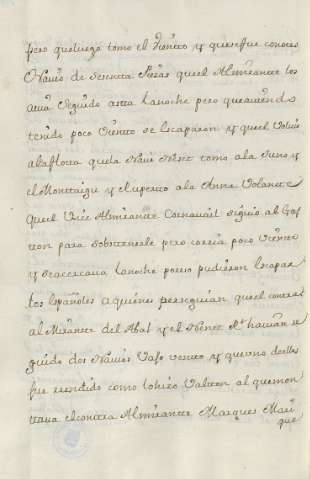 pero que luego tomo el viento y que se fue con otros
Navios de setenta Piezas que el Almirante los
avia seguido asta la noche pero que aviendo
tenido poco viento se escaparon y que el Volvio
a la flotta que la Nave
el Monttaigu y el supervo a la Anna Volante
que el Vice Almirante Cornavait siguio al Gas
ton para sobstenerle pero corria poco Viento
y se accercava la noche pudieron escapar
los españoles a quienes perseguian que el contra
al Mirante del Abat y el Henrr
guido dos Navios y que uno de ellos
fue rendido como lo hizo al que mon
ttava el contra Almirante Marques Mari
que